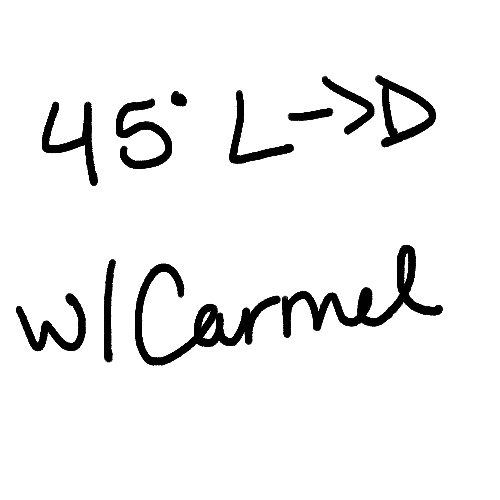 45° L->D
w/Carmel